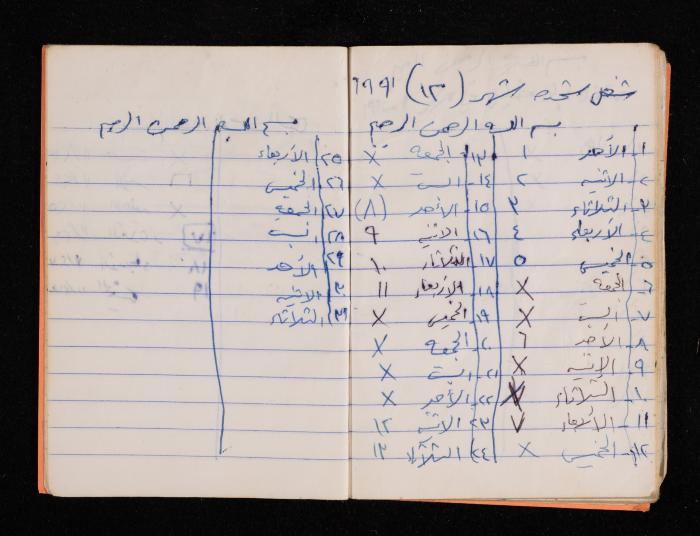 شغل شحده شهر (١٢) ١٩٩١
بسم الله الرحمن الرحيم
١- الأحد ١
٢- الاثنين ٢
٣- الثلاثاء ٣
٤- الأربعاء ٤
٥- الخميس ٥
٦- الجمعة X
٧- السبت X
٨- الأحد ٦
٩- الإثنين X
١٠- الثلاثاء X
١١- الأربعاء ٧
١٢- الخميس X
١٣- الجمعه X
١٤- السبت X
١٥- الأحد (٨)
١٦- الاثنين ٩
١٧- الثلاثاء ١٠
١٨- الاربعاء ١١
١٩- الخميس X
٢٠- الجمعه X
٢١- السبت X
٢٢- الأحد X
٢٣- الاثنين ١٢
٢٤- الثلاثاء ١٣
بسم الله الرحمن الرحيم
٢٥ الأربعاء
٢٦ الخميس
٢٧ الجمعة
٢٨ السبت
٢٩ الأحد
٣٠ الاثنين
٣١ الثلاثاء